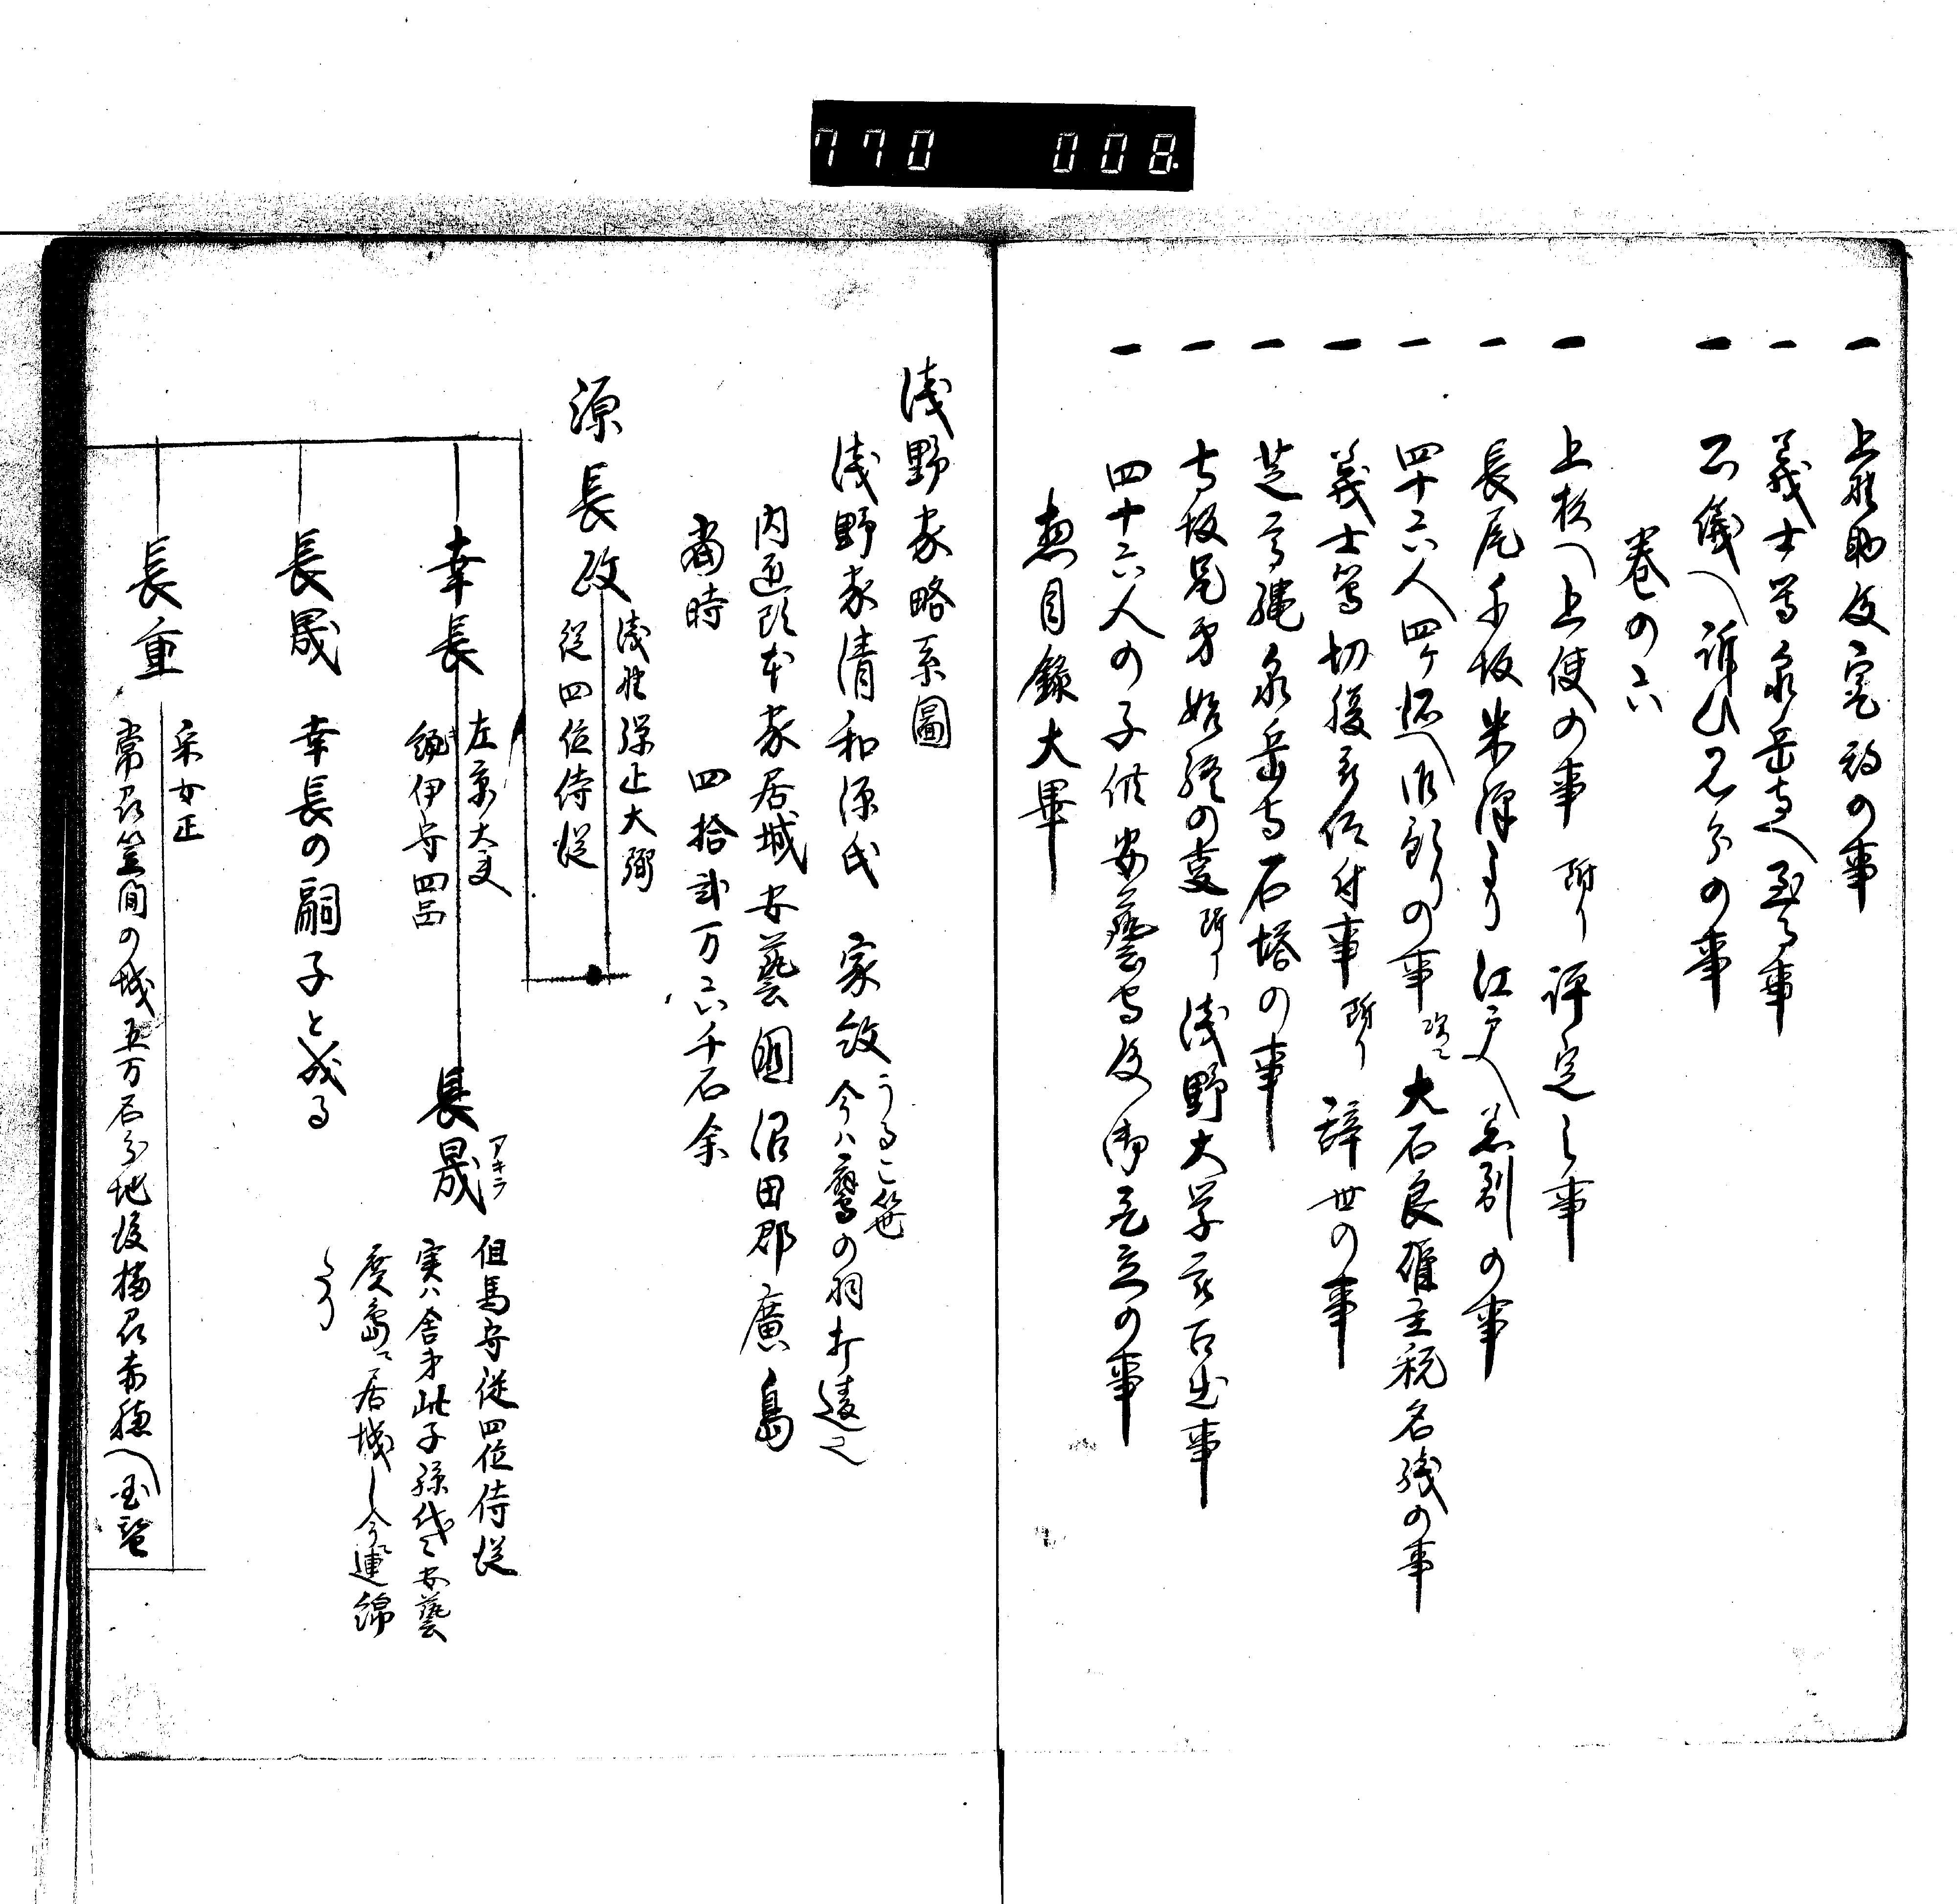 770 008
一 上野助殿宅改の事
一 義士等泉岳寺へ至る事
一 公儀へ訴ひ又分の事
巻の六
一 上杉へ上使の事 附り 評定之事
一 長尾千坂米沢より江戸へ着到の事
一 四十六人四ケ処へ御預りの事 大石良雄主税名残の事
一 義士等切腹被仰付事 附り 辞世の事
一 芝高縄泉岳寺石塔の事
一 寺坂兄弟始終の事 附り 浅野大学被召出事
一 四十六人の子供安藝守殿御取立の事
惣目録大畢
浅野家略系圖
浅野家清和源氏 家紋
今ハ鷹の羽打違也
内匠頭本家居城安藝國沼田郡廣島
當時 四拾弐万六千石余
源長政
浅野弾正大弼
従四位侍従
幸長
左京大夫
紀伊守四品
長晟
アキラ
但馬守従四位侍従
実ハ舎弟此子孫代々安藝
広島ニ居城し今ニ連綿
たり
長晟 幸長の嗣子と成る
長重
采女正
常州笠間の城五万石分地後播州赤穂へ